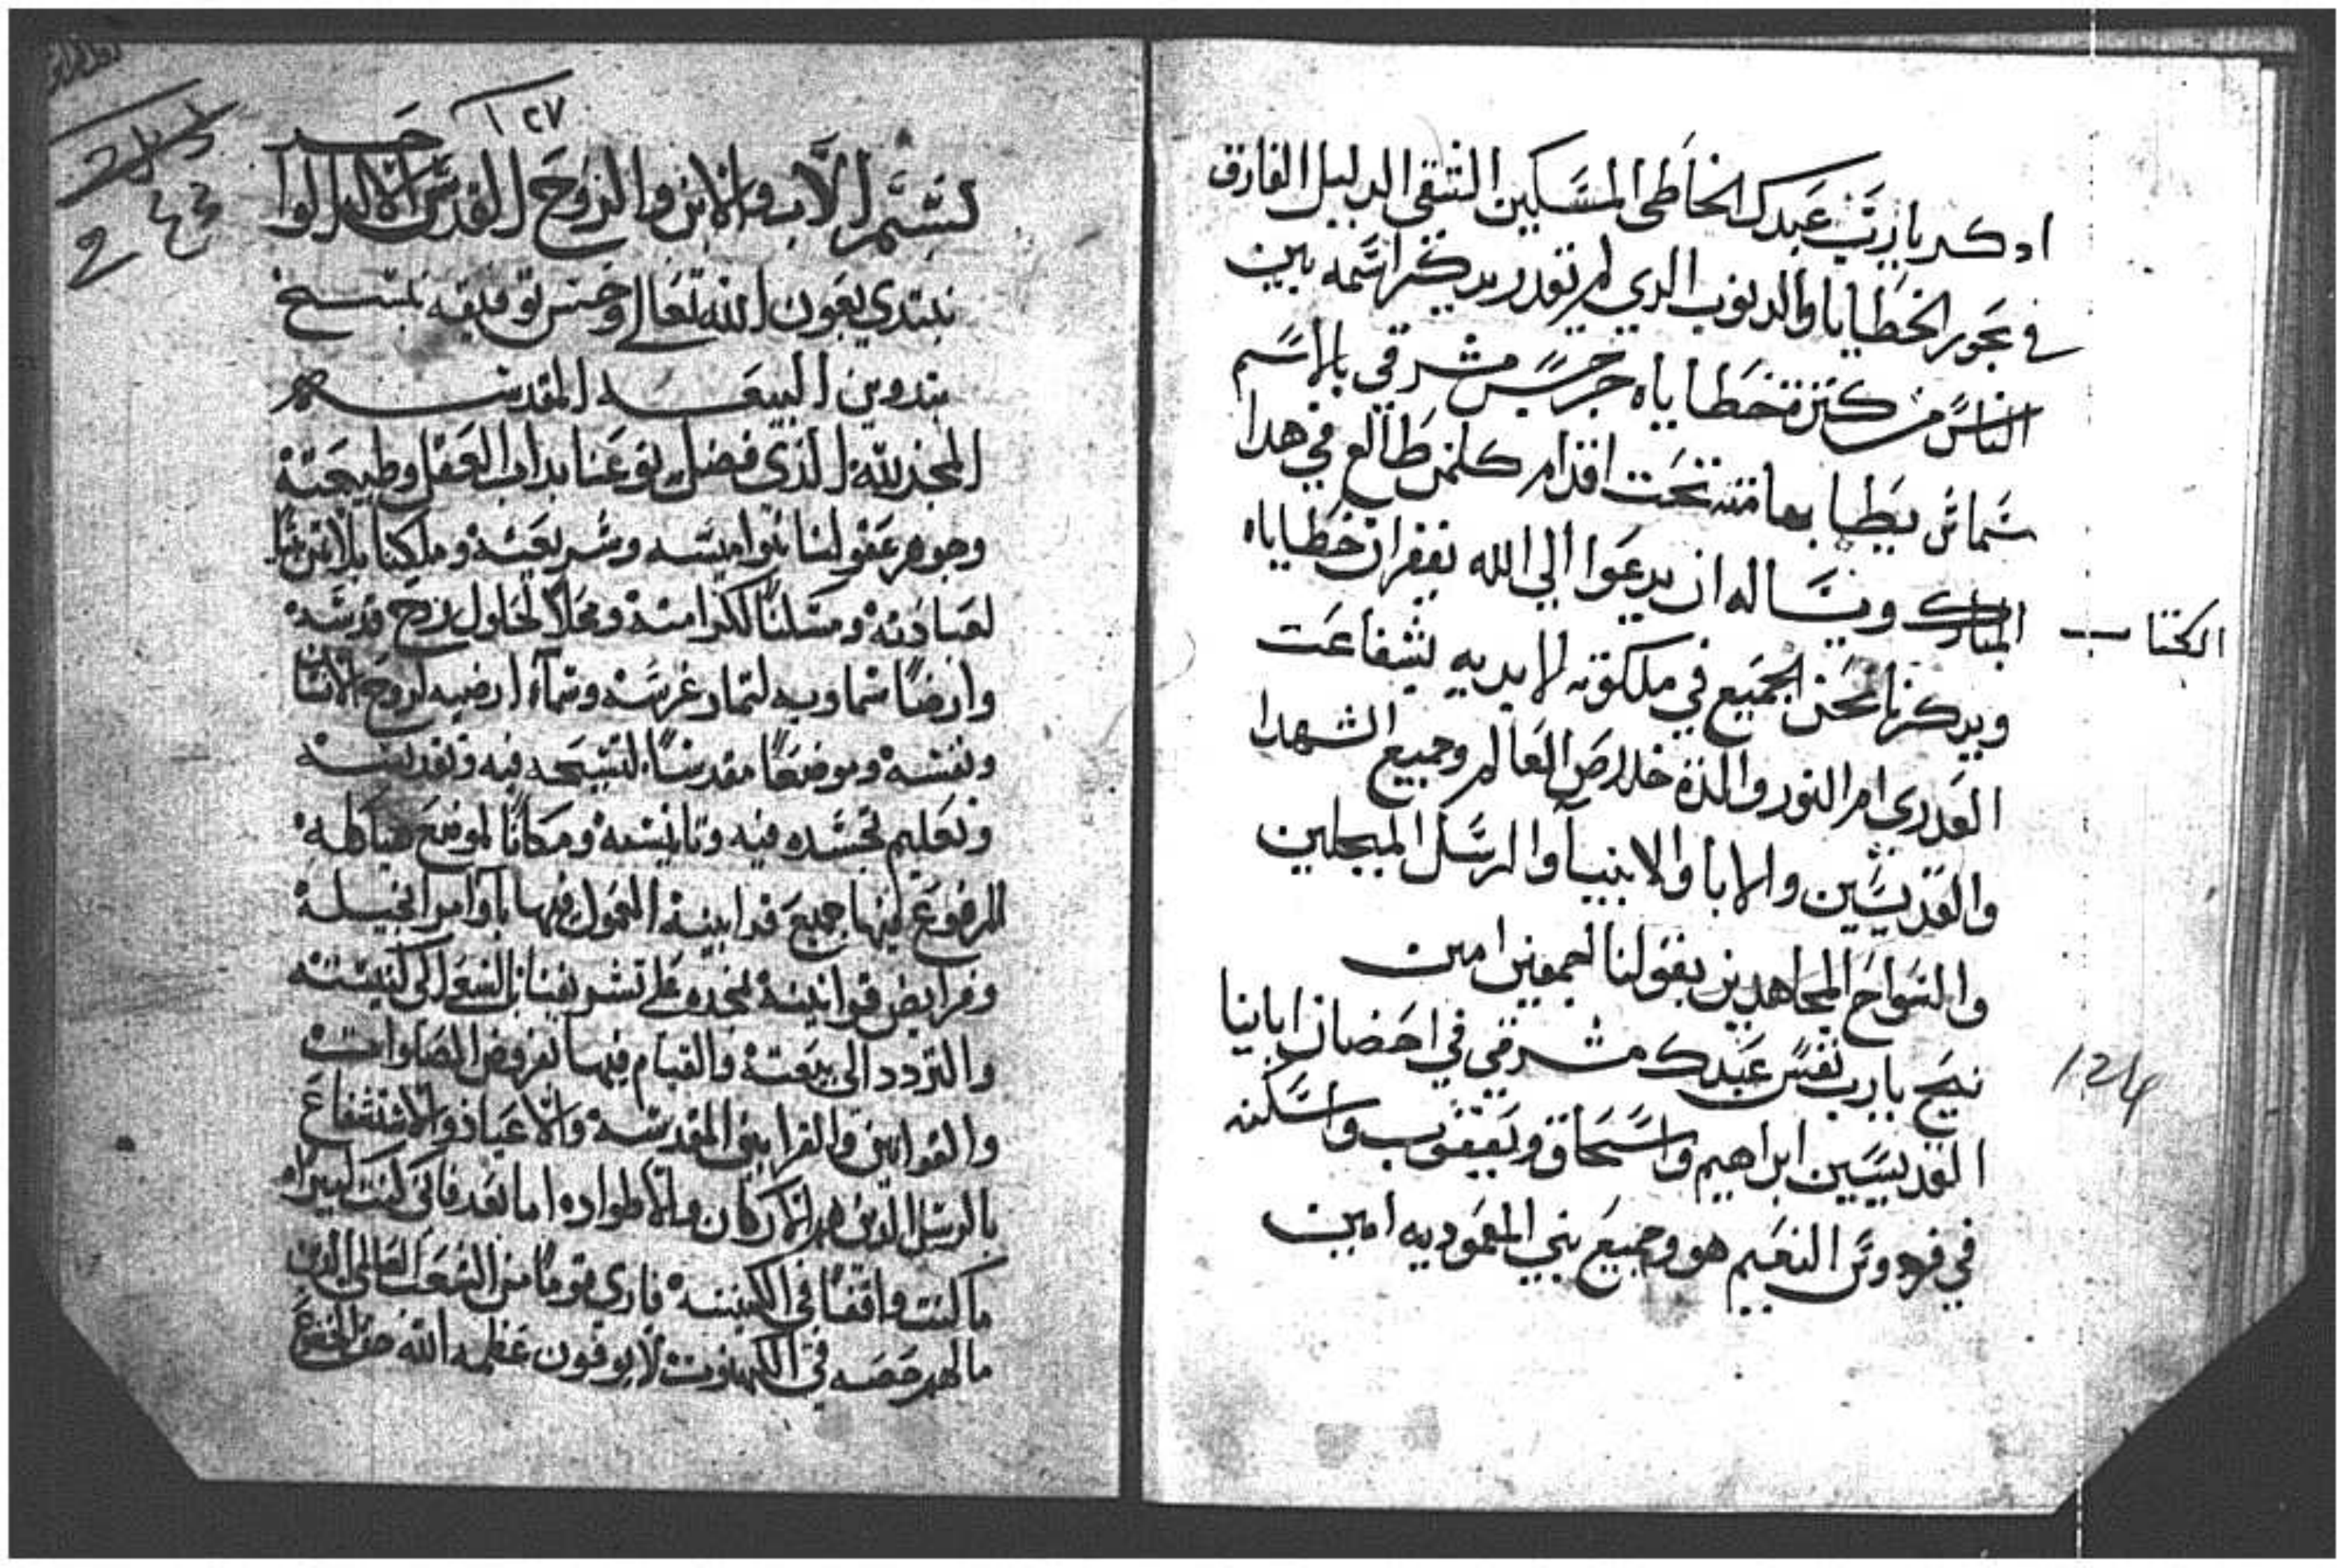 ادكر يا رب عبدك الخاطى المسكين الشقى الدليل الغارق
في بحور الخطايا والدنوب الدي لم تقدر يدكر اسمه بين
الناس من كترة خطاياه جرجس مشرقي بالاسم
شماس يطا بهامته تحت اقدام كلمن طالع في هدا
الكتاب
المبارك ويساله ان يدعوا الي الله بغفران خطاياه
ويدكرنا نحن الجميع في ملكوته الابديه بشفاعت
العدرى ام النور والدة خلاص العالم وجميع الشهدا
والقديسين والابا والانبيا والرسل المبجلين
والسواح المجاهدين يقولنا اجمعين امين
نيح يا رب نفس عبدك مشرقي في احضان اباينا
124
القديسين ابراهيم واسحاق ويعقوب واسكنه
في فردوس النعيم هو وجميع بني المعموديه امين
١٢٧
بسم الاب والابن والروح القدس الاله الواحد
نبتدي بعون الله تعالى وحسن توفيقه بنسخ
بتدوين البيعه المقدسه
المجد لله الذى فضل نوعنا بداب العقل وطبيعته
وجوهر عقولنا بنواميسه وشريعته وملكينا
لعبادته ومسكنا لكرامته ومحلا لحلول روح قدسه
وارضا سماويه لتمار غرسه وسماء ارضيه لروح الانسان
ونفسه وموضعا مقدسا لتسبيحه فيه وتقديسه
وتعليم تجسده فيه وتانيسه ومكانا لموضع هياكله
المرفوع فيها جميع قرابينه المعمول فيها باوامر انجيله
وفرايض قوانينه نمجده على تشريفنا بالسعى الى كنيسته
والتردد الى بيعته والقيام فيها بفروض الصلوات
والقوانين والقرابين المقدسه والاعياد والاستشفاع
بالرسل الدين هم الاركان والاطواد اما بعد فانى كنت كتيرا
ما كنت واقفا في الكنيسه فارى قوما من الشعب العالمى الدين
ما لهم حصه في الكهنوت لا يوفون عظمه الله حق